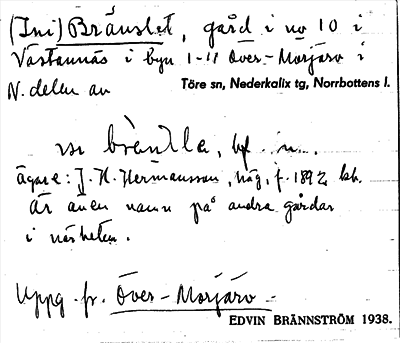 (Ini) Bränslet, gård i no 10 i
Västannäs i byn 1-11 Över-Morjärv i
N. delen av Töre sn, Nederkalix tg, Norrbottens l.
ägare: J. H. Hermansson, f. 1892
Är även namn på andra gårdar
i närheten.
Uppg. fr. Över-Morjärv
EDVIN BRÄNNSTRÖM 1938.